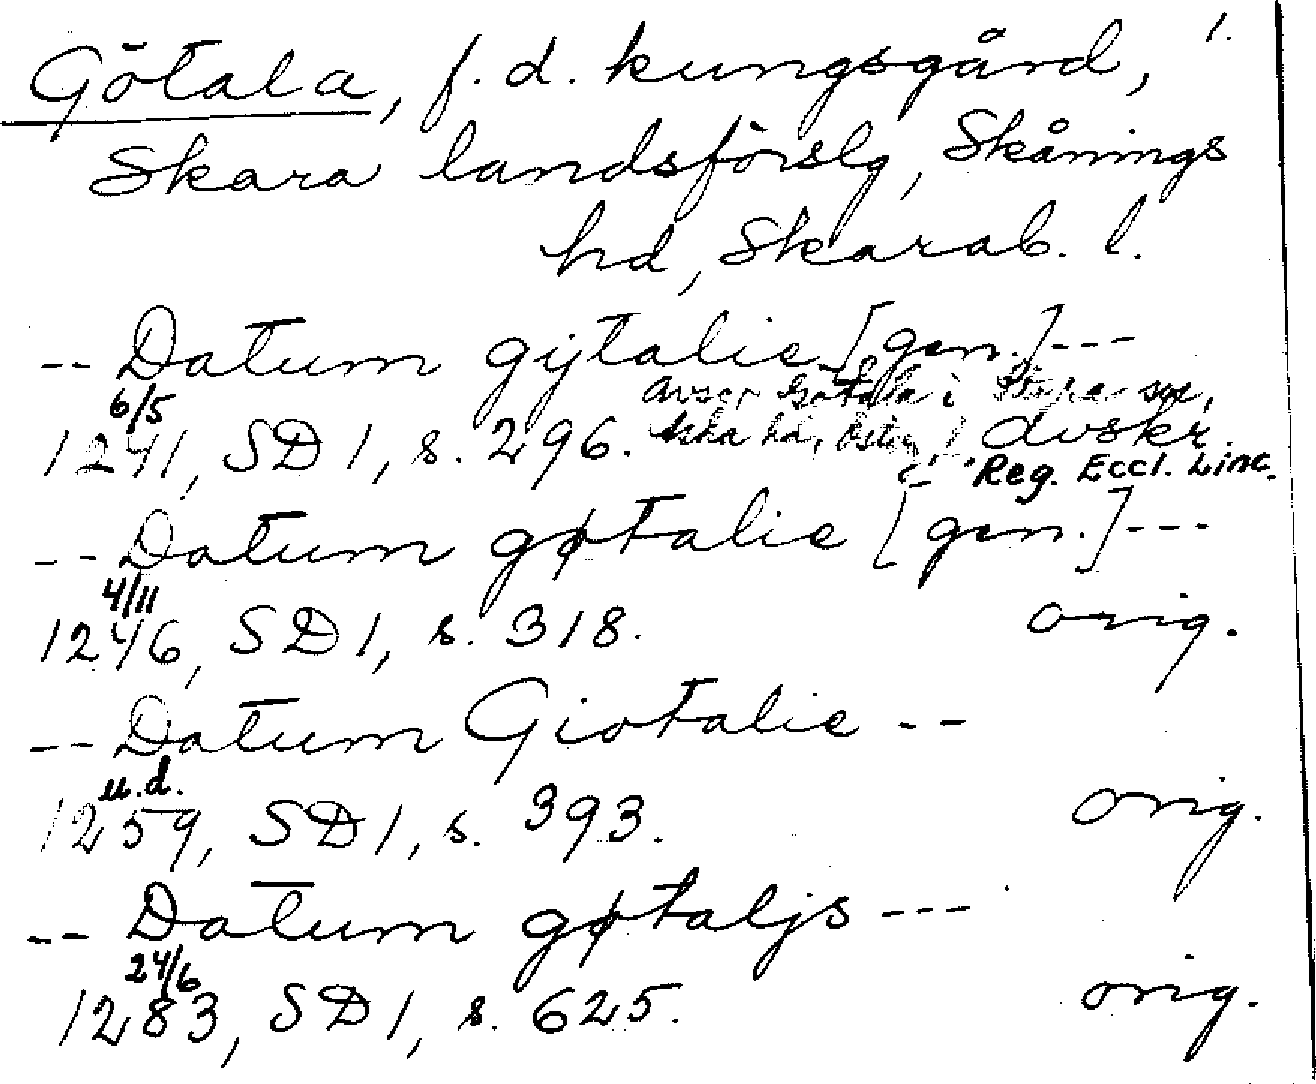 1.
Götala, f. d. kungsgård,
Skara landsförslg, Skånings
hd, Skarab. l.
-- Datum gÿtalie [gen.] ---
avser Götala i sn,
6/5
1241, SD 1, s. 296. hd, avskr.
Reg. Eccl. Linc.
-- Datum gøtalie [gen.] ---
4/11
1246, SD 1, s. 318. orig.
-- Datum Giotalie --
u.d.
1259, SD 1, s. 393. orig.
-- Datum gøtaljs ---
24/6
1283, SD 1, s. 625. orig.